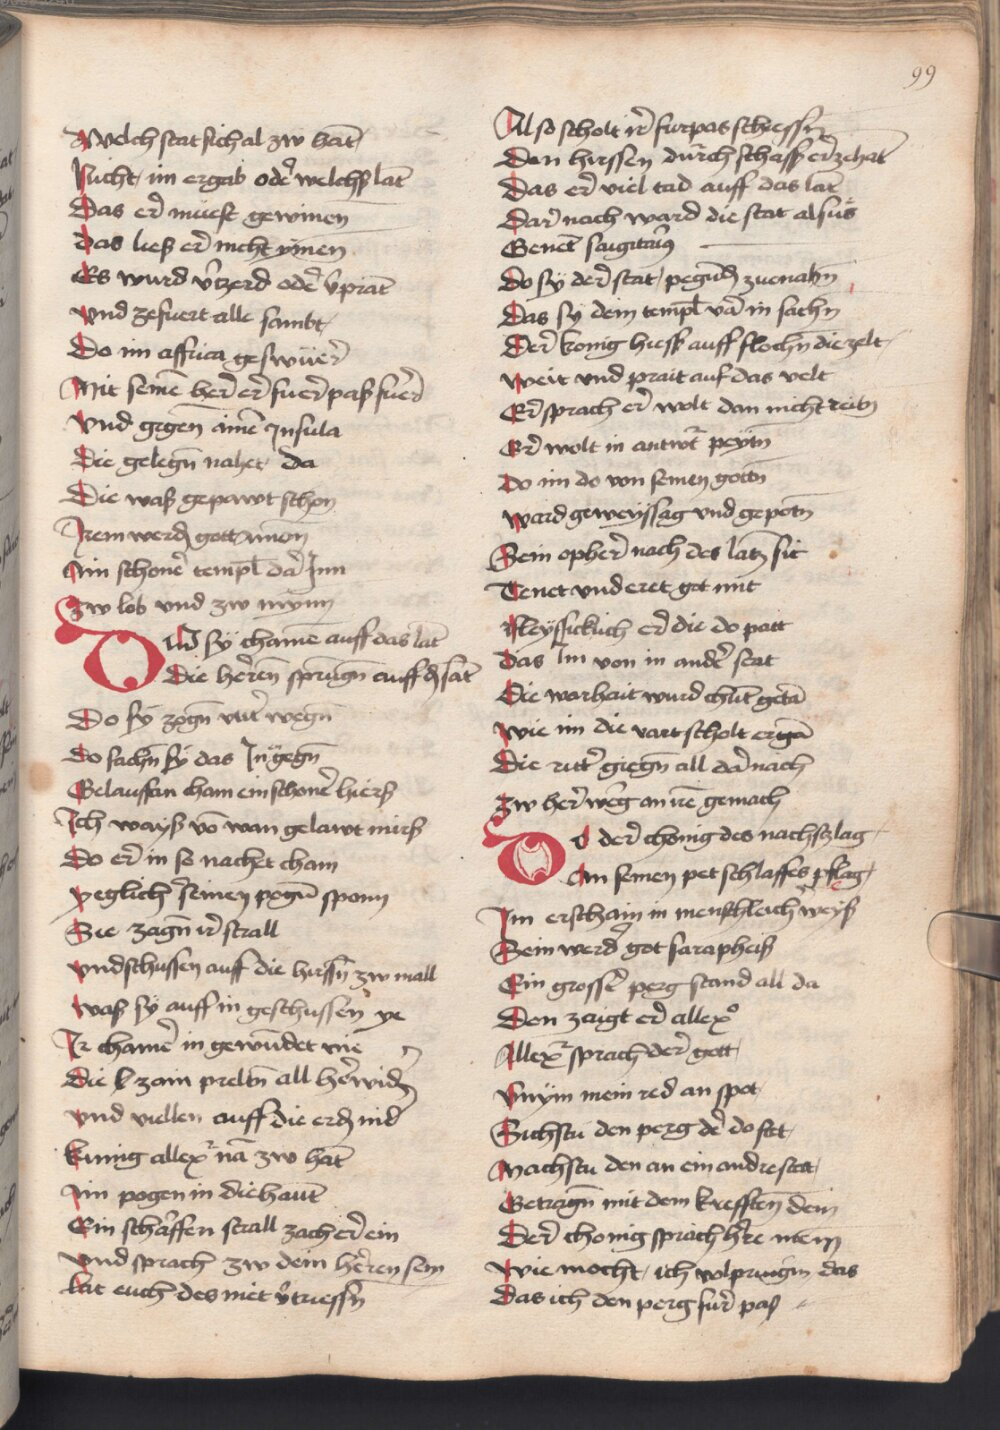 99
Welch stat sich al zw hāt
Nicht im ergab oder welchs lāt
Das er müest gewinen
das lies er nicht ynnen
Es wurd v̄tzerd oder v̄prāt
Vnd zefuert alle sambt
Do im affrica geswüer
Mit seinē her er fuerpas fuer
Vnd gegen ainē Insula
Die gelegn̄ nahet da
Die was gepawt schon
Irem werdn̄ gott
Ain schoner templ̄ dar Inn
zw lob vnd zw mynn
Do sy chamē auff das lāt
Die herren sprūgn̄ auff dn̄ sāt
Do sy zogn̄ vnter wegn̄
do sachn̄ sy das In gegn̄
Gelauffan cham ein schoner hiers
Ich ways vō wan gelawt mirs
Do er in so nachet cham
yeglicher seinen pogn̄ sponn
Sie zagn̄ ir strall
vnd schussen auff die hirssn̄ zw mall
was sy auff in geschussen ye
Ir chamē in gewūdet nie
die zain preltn̄ all herwider
vnd viellen auff die erdn̄ nider
kunig allex nā zw hāt
Ain pogen in die hant
Ein scharffen strall zach er ein
vnd sprach zw dem herren sein
lat euch des niet v̄driessn̄
Also scholt ir furpas schiessn̄
Den hirssen durch schass er zehāt
Das er viel tad auff das lāt
Dar nach ward die stat alsus
Genēt saigitarius
Do sy der stat pegundn̄ zuenahn̄
Das sy dem templ̄ vā in sachn̄
Der konig hiess auff slachn̄ die zelt
weit vnd prait auf das velt
Er sprach er wolt dan nicht reitn̄
Er wolt in antwt̄ peytn̄
do im do von seinen gottn̄
ward geweyssag vnd gepotn̄
Sein opher nach des latz sit
Tenet vnd eret got mit
Fleyssicklich er die do patt
das Im von in ander stat
Die warhait wurd chūt getā
wie im die vart scholt ergā
Die ritter giegn̄ all dar nach
zw herwerg an ire gemach
Do der chonig des nachs lag
An seinen pet schlaffes pflag
Im erschain in menschleich weys
Sein werder got sarapheis
Ein grosser perg stand all da
Den zaigt er allexo
Allexr sprach der gott
vnym mein red an spot
Sichstu den perg der do stet
Machstu den an ein andre stett
Getragn̄ mit dem krefften dein
Der chonig sprach herre mein
wie mocht ich volpringn̄ das
Das ich den perg furpas